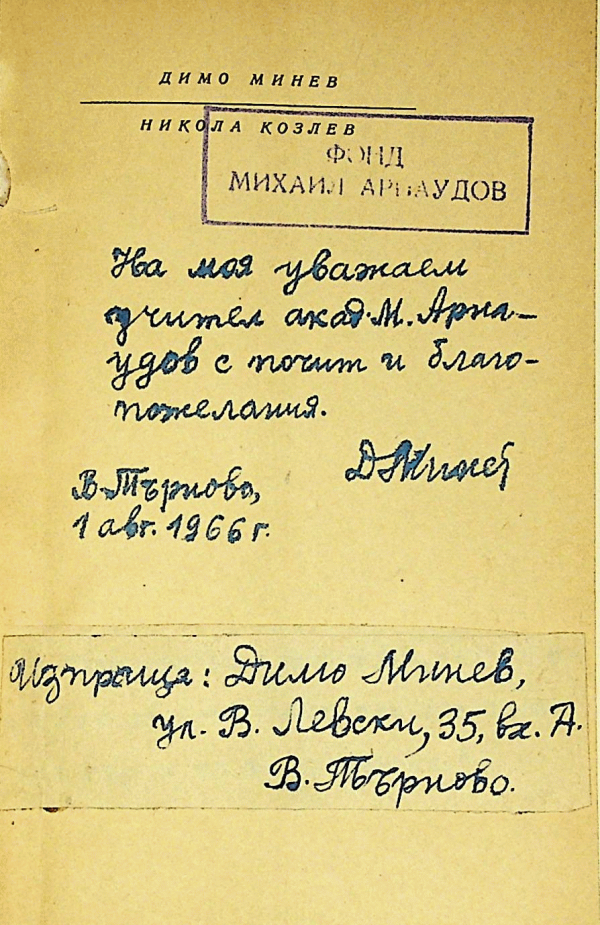 ДИМО МИНЕВ
НИКОЛА КОЗЛЕВ
ФОНД
МИХАИЛ АРНАУДОВ
На моя уважаем
учител акад. М. Арна-
удов с почит и благо-
пожелания.
ДМинев
В. Търново,
1 авг. 1966 г.
Изпраща: Димо Минев,
ул. В. Левски, 35, вх. А.
В. Търново.